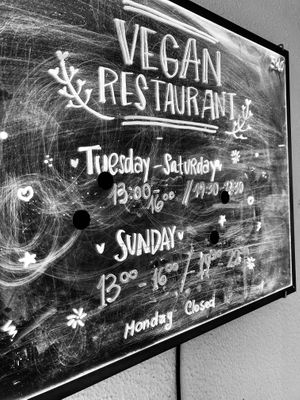 VEGAN
RESTAURANT
Tuesday - Saturday
13:00 16⁰⁰ // 19:30
SUNDAY
13⁰⁰ - 16⁰⁰ /
Monday Closed